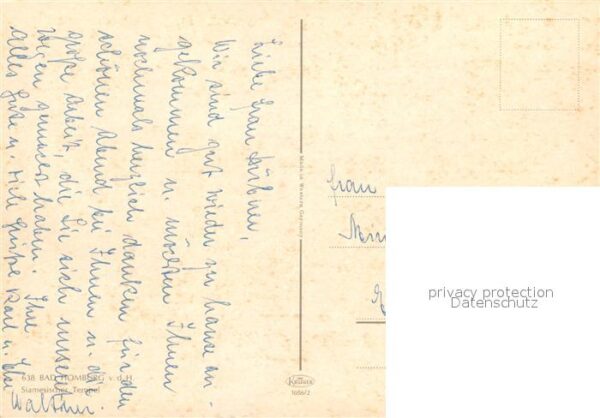 Liebe Frau Hübner,
Wir sind gut wieder zu Hause an-
gekommen u. möchten Ihnen
nochmals herzlich danken für den
schönen Abend bei Ihnen u. die
große Arbeit, die Sie sich unseret-
wegen gemacht haben. Ihnen
alles Gute u. viele Grüße Karl u. Else
Walther.
638 BAD HOMBURG v.d.H.
Siamesischer Tempel
MADE IN WESTERN GERMANY
Krüger
1086/2
Frau
privacy protection
Datenschutz